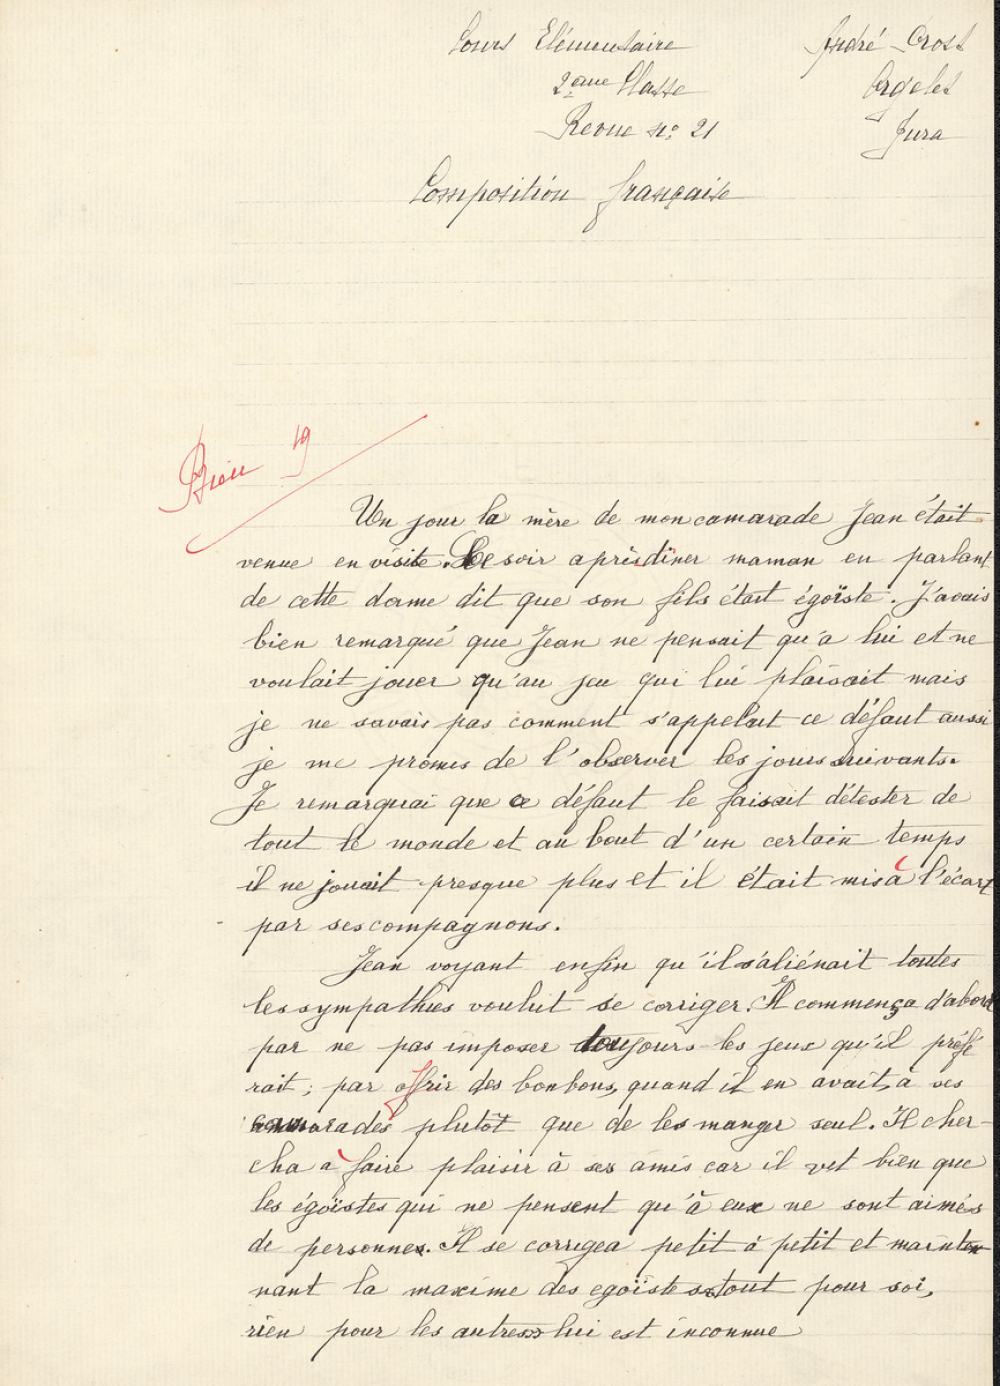 Cours Elémentaire
André Cros
2eme Classe
Orgelet
Revue no 21
Jura
Composition française
Bien 19
Un jour la mère de mon camarade Jean était
venue en visite. Le soir après dîner maman en parlant
de cette dame dit que son fils était égoïste. J'avais
bien remarqué que Jean ne pensait qu'à lui et ne
voulait jouer qu'au jeu qui lui plaisait mais
je ne savais pas comment s'appelait ce défaut aussi
je me promis de l'observer les jours suivants.
Je remarquai que ce défaut le faisait détester de
tout le monde et au bout d'un certain temps
il ne jouait presque plus et il était mis à l'écart
par ses compagnons.
Jean voyant enfin qu'il s'aliénait toutes
les sympathies voulut se corriger. Il commença d'abord
par ne pas imposer toujours les jeux qu'il préfé
rait; par offrir des bonbons, quand il en avait, à ses
camarades plutôt que de les manger seul. Il cher-
cha à faire plaisir à ses amis car il vit bien que
les égoïstes qui ne pensent qu'à eux ne sont aimés
de personnes. Il se corrigea petit à petit et mainte
nant la maxime des egoïstes tout pour soi,
rien pour les autres lui est inconnue